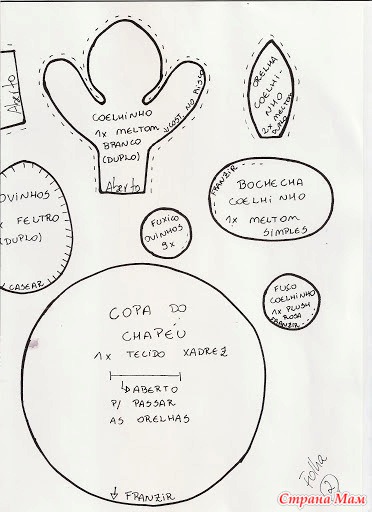 Aberto
COELHINHO
1x MELTOM
BRANCO
(DUPLO)
↓COST. NO RISCO
Aberto
ORELHA
COELHI-
NHO
2x MELTOM
DUPLO
OVINHOS
x FELTRO
(DUPLO)
CASEAR
FUXICO
OVINHOS
9x
FRANZIR
BOCHECHA
COELHINHO
1x MELTOM
SIMPLES
FUÇO
COELHINHO
1x PLUSH
ROSA
FRANZIR
COPA DO
CHAPÉU
1x TECIDO XADREZ
↳ABERTO
P/ PASSAR
AS ORELHAS
↓ FRANZIR
Folha
2
Страна Мам